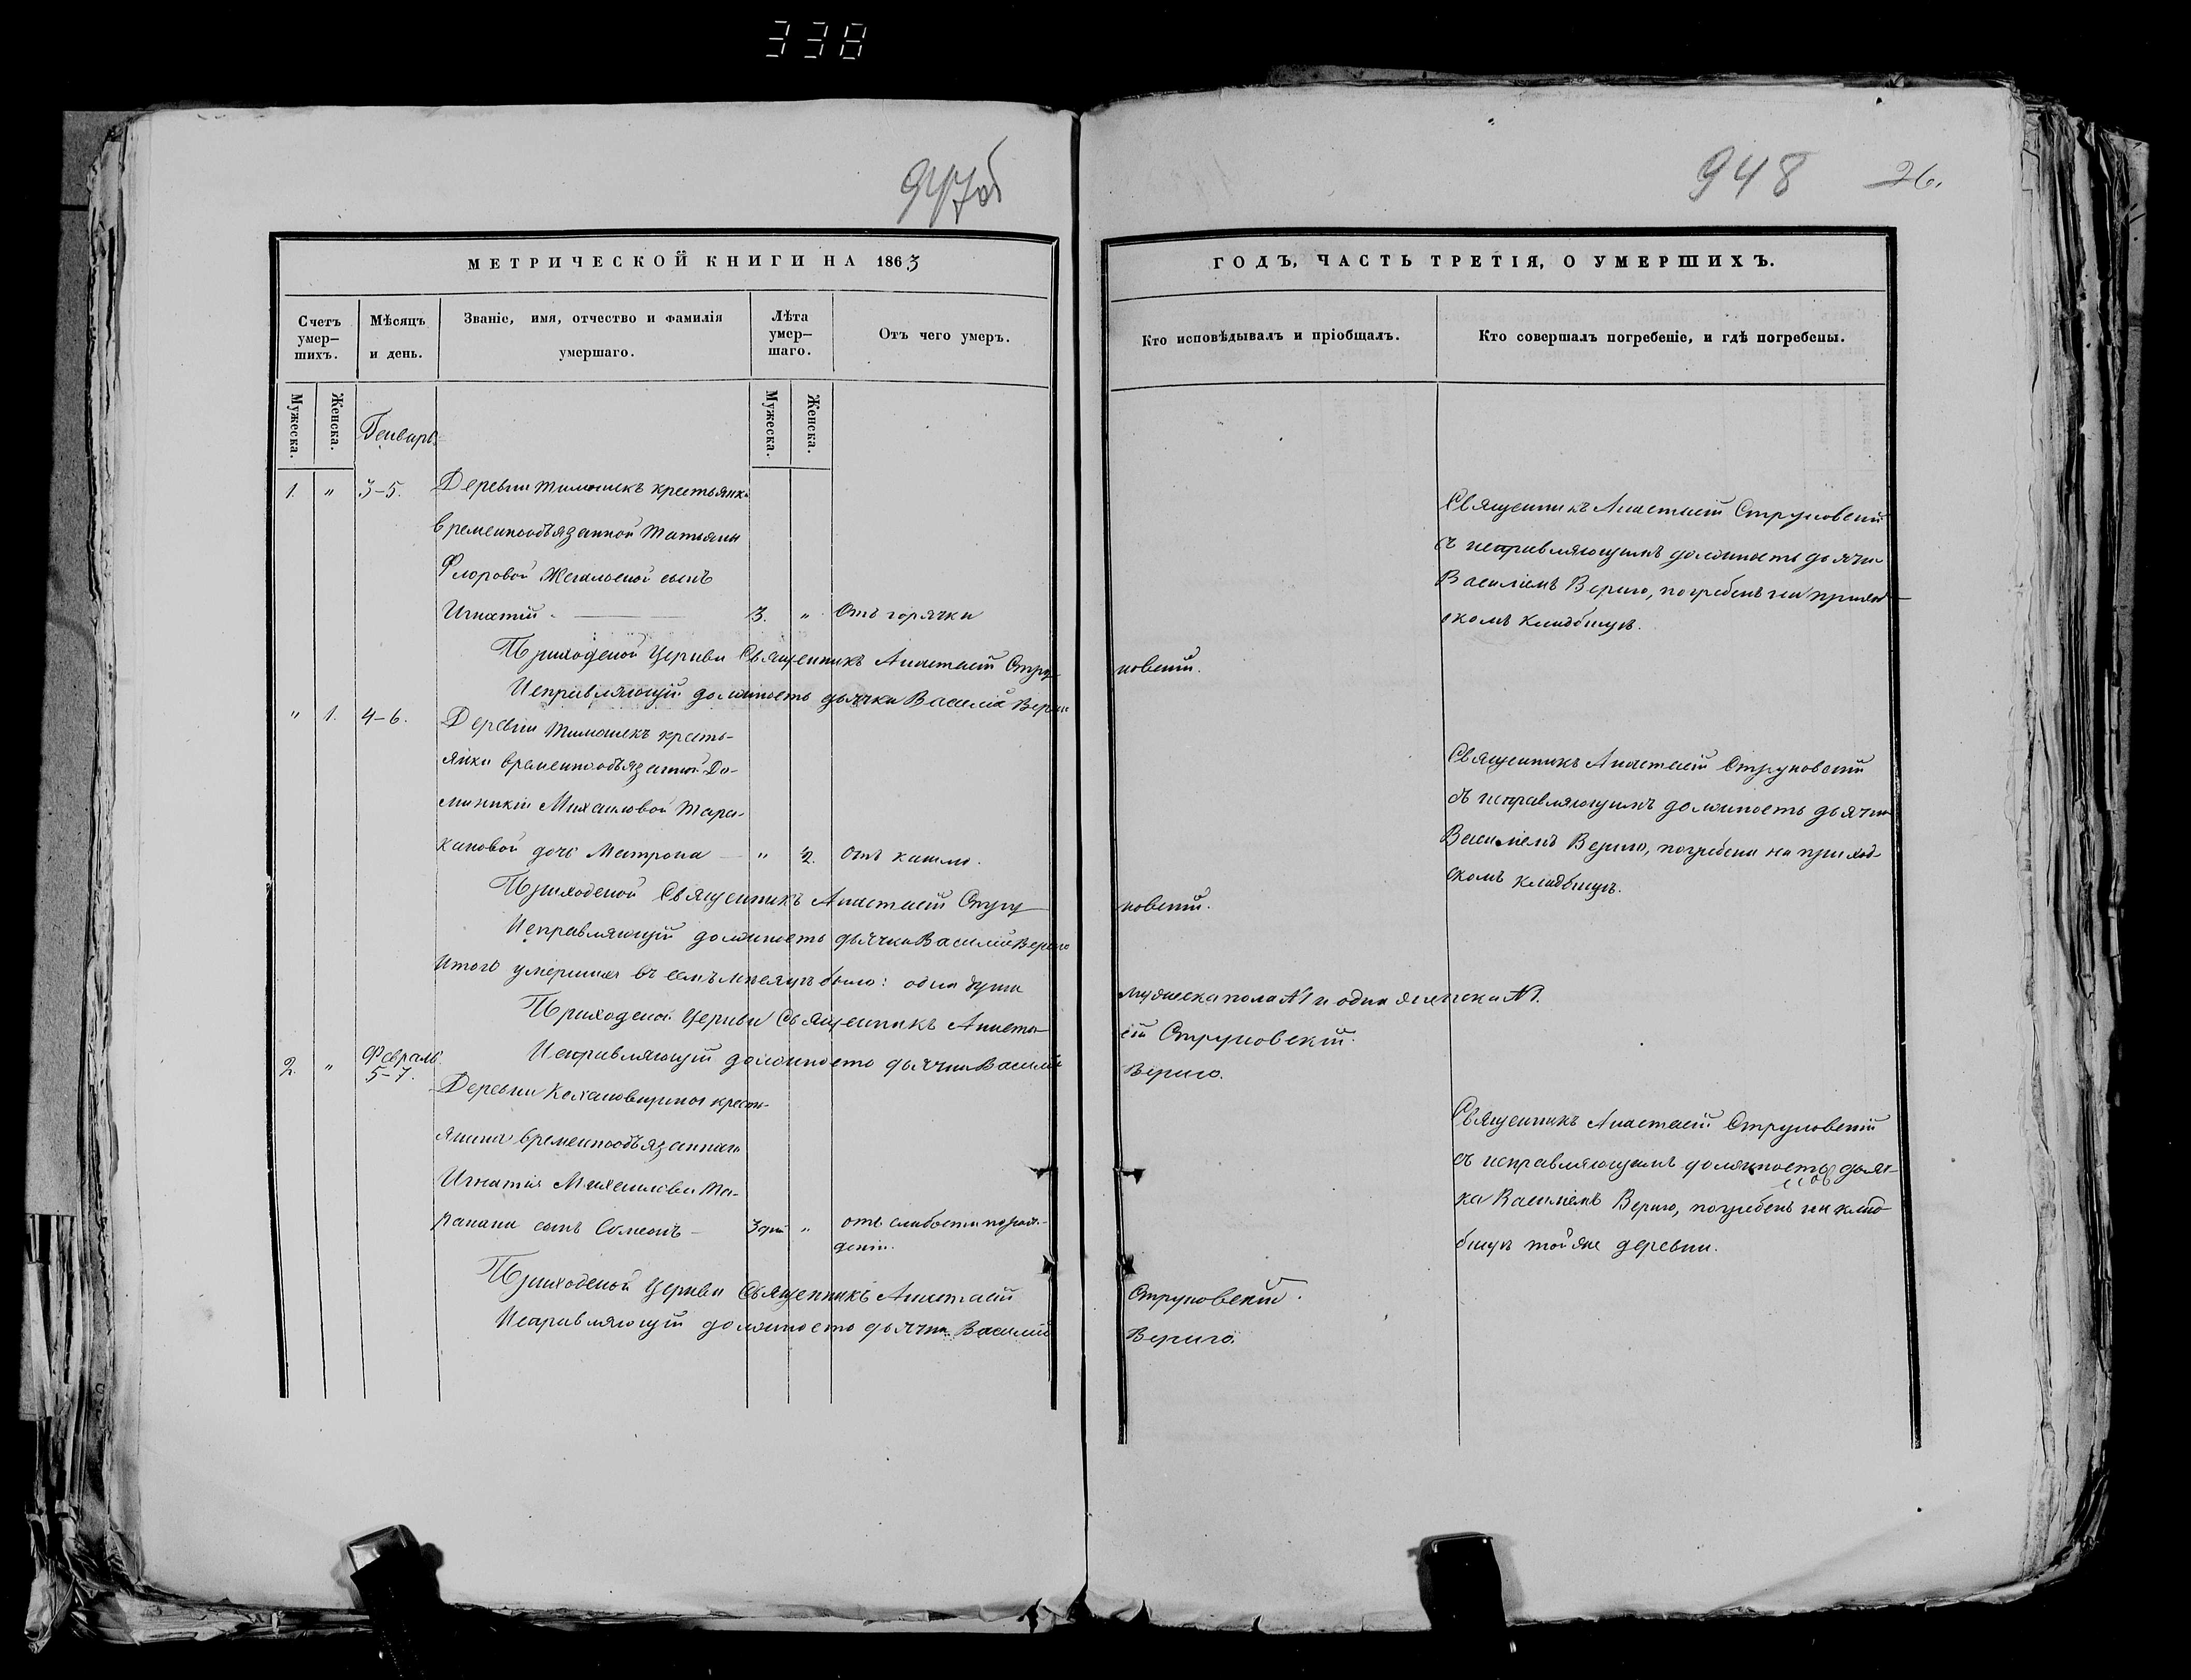 338
947об
948 26.
МЕТРИЧЕСКОЙ КНИГИ НА 1863
ГОДЪ, ЧАСТЬ ТРЕТІЯ, О УМЕРШИХЪ.
Счетъ умер–шихъ.
Мѣсяцъ и день.
Званіе, имя, отчество и фамилія умершаго.
Лѣта умер–шаго.
Отъ чего умеръ.
Кто исповѣдывалъ и пріобщалъ.
Кто совершалъ погребеніе, и гдѣ погребены.
Мужеска.
Женска.
Мужеска.
Женска.
Генварь
1. " 3–5. Деревни Тимошекъ крестьянки
временнообязанной Татьяны
Флоровой сынъ
Игнатій 3. " Отъ горячки
Священникъ Анастасій Струковскій
съ исправляющимъ должность дьячка
Василіемъ Вериго, погребенъ на приход-
скомъ кладбищѣ.
Приходской Церкви Священникъ Анастасій Стру-
ковскій.
Исправляющій должность дьячка Василій Вериго
" 1. 4–6. Деревни Тимошекъ кресть-
янки временнообязанной До-
миникіи Михаиловой Тара-
кановой дочь Матрона " 2. Отъ кашлю.
Священникъ Анастасій Струковскій
съ исправляющимъ должность дьячка
Василіемъ Вериго, погребена на приход-
скомъ кладбищѣ.
Приходской Священникъ Анастасій Стру-
ковскій.
Исправляющій должность дьячка Василій Вериго
Итого умершихъ въ семъ мѣсяцѣ было: одна душа
мужеска пола №1 и одна женска №1.
Приходской Церкви Священникъ Анаста-
сій Струковскій.
Исправляющій должность дьячка Василій
Вериго.
Февраль
2. " 5–7.
Деревни кресть-
янина временнообязаннаго
Игнатія Михаилова Та-
ракана сынъ Симеонъ 3 дня " отъ слабости по рож-
деніи.
Священникъ Анастасій Струковскій
съ исправляющимъ должность дьяч-
ка Василіемъ Вериго, погребенъ на клад-
бищѣ той же деревни.
Приходской Церкви Священникъ Анастасій
Струковскій.
Исправляющій должность дьячка Василій
Вериго.